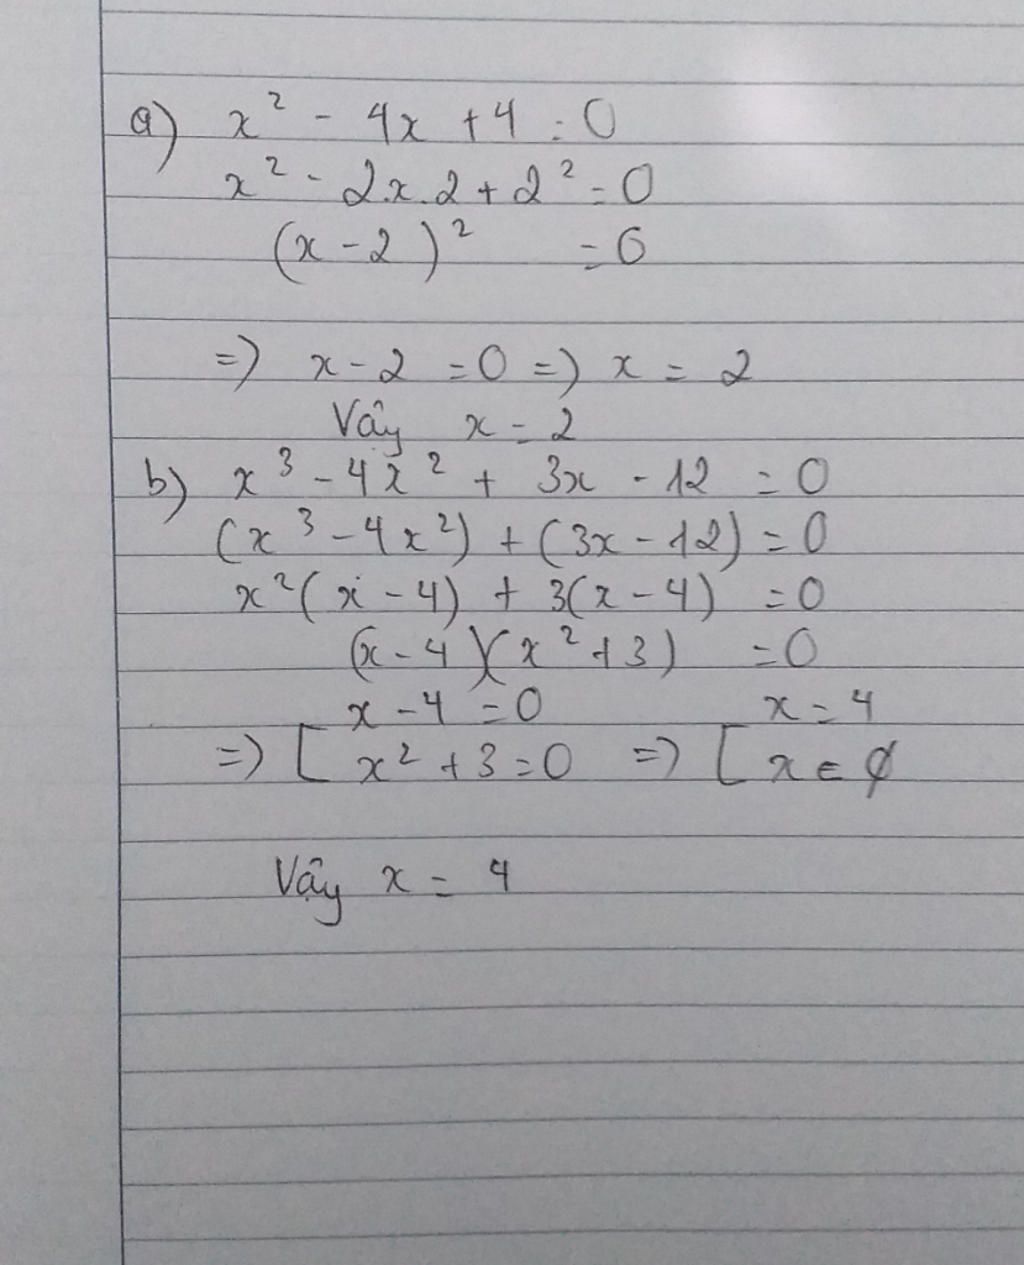 a) x² - 4x + 4 = 0
x² - 2.x.2 + 2² = 0
(x - 2)² = 0
=) x - 2 = 0 =) x = 2
Vậy x = 2
b) x³ - 4x² + 3x - 12 = 0
(x³ - 4x²) + (3x - 12) = 0
x²(x - 4) + 3(x - 4) = 0
(x - 4)(x² + 3) = 0
x - 4 = 0 x = 4
=) [ x² + 3 = 0 =) [ x ∈ ∅
Vậy x = 4